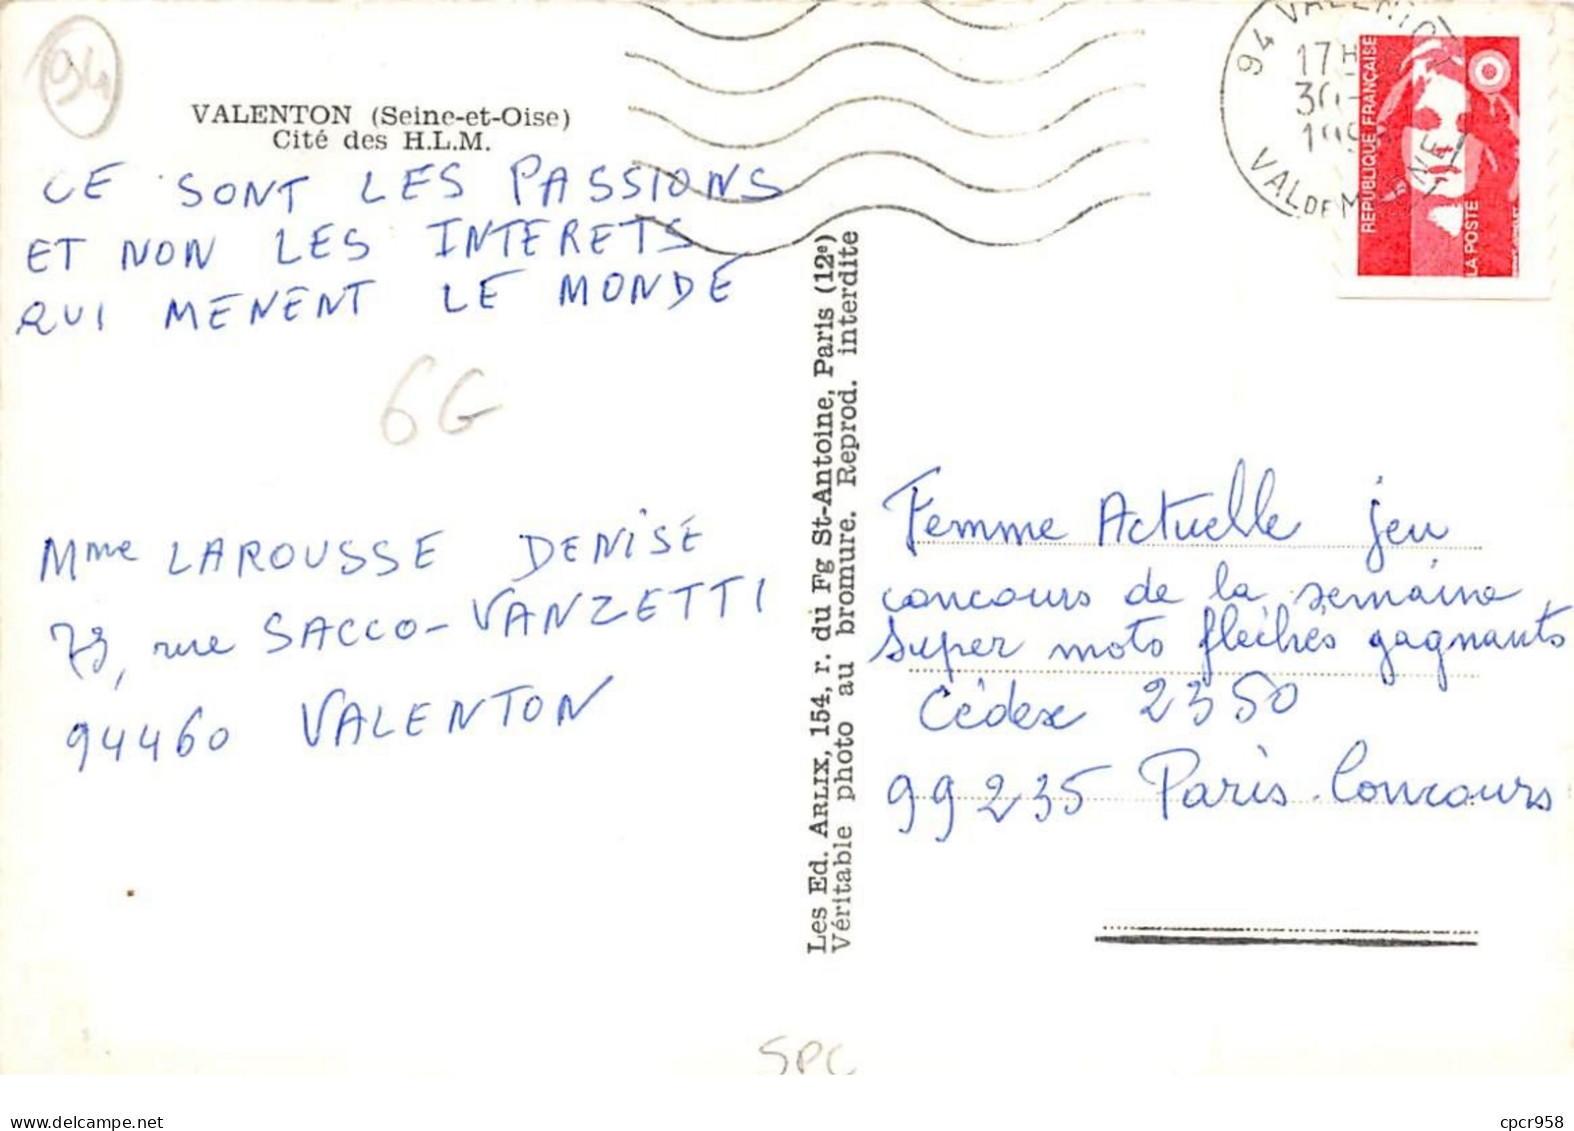 94
VALENTON (Seine-et-Oise)
Cité des H.L.M.
CE SONT LES PASSIONS
ET NON LES INTERETS
QUI MENENT LE MONDE
6G
Mme LAROUSSE DENISE
79, rue SACCO-VANZETTI
94460 VALENTON
Les Ed. ARLIX, 154, r. du Fg St-Antoine, Paris (12e)
Véritable photo au bromure. Reprod. interdite
94 VALENTON
17H
30
VAL DE MARNE
REPUBLIQUE FRANÇAISE
LA POSTE
Femme Actuelle jeu
concours de la semaine
super mots fléchés gagnants
Cédex 2350
99235 Paris Concours
SPC
cpcr958